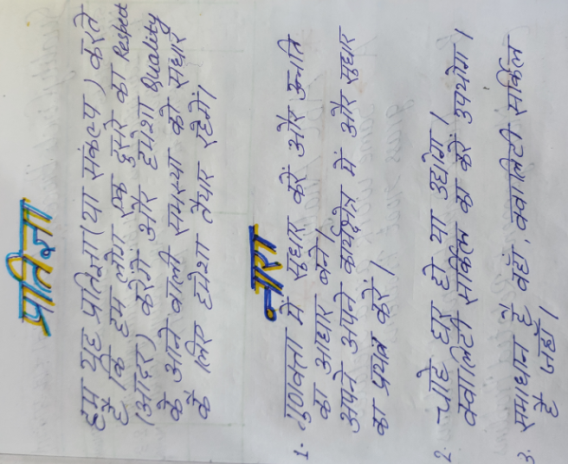 प्रतिज्ञा
हम यह प्रतिज्ञा (या संकल्प) करते
हैं कि हम लोग एक दूसरे का Respect
(आदर) करेंगे और हमेशा Quality
के आने वाली समस्या को सुधारे
के लिए हमेशा तैयार रहेंगें।
नारा
1. गुणवत्ता में सुधार करें और उन्नति
का आधार बने।
अपने अपने कार्यक्षेत्र में और सुधार
का प्रयत्न करे।
2. चाहे घर हो या उद्योग।
क्वालिटी सर्किल का करें उपयोग।
3. समाधान है वहां, क्वालिटी सर्किल
है जहाँ।